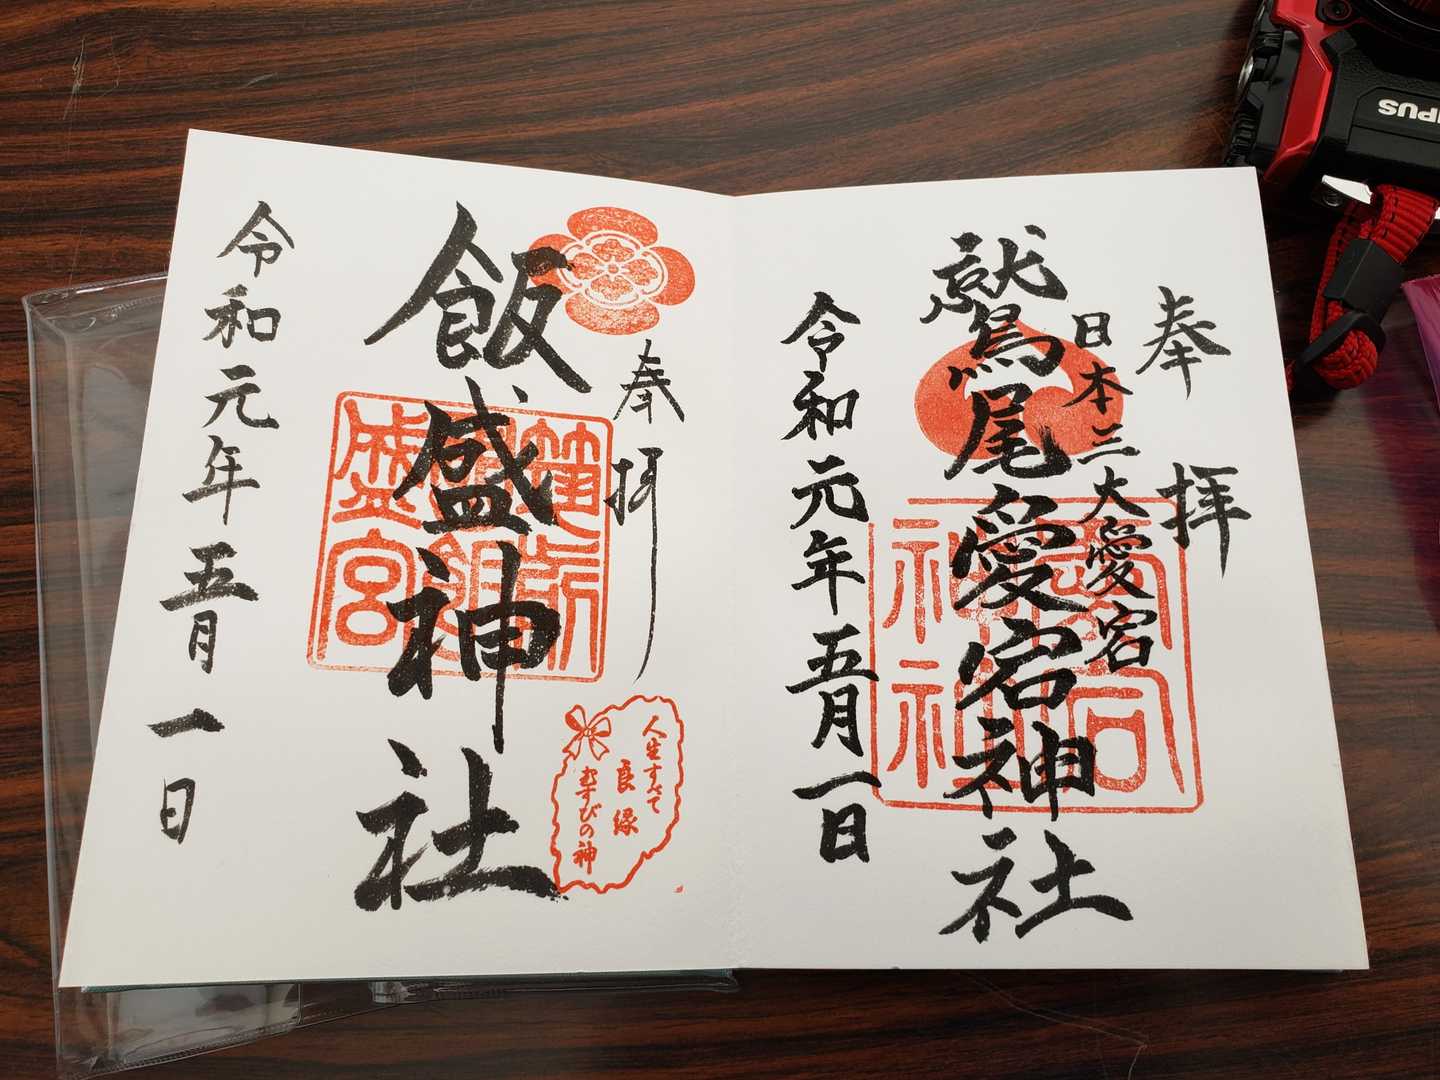 奉拝
日本三大愛宕
鷲尾愛宕神社
令和元年五月一日
奉拝
飯盛神社
令和元年五月一日
人生すべて
良縁
むすびの神